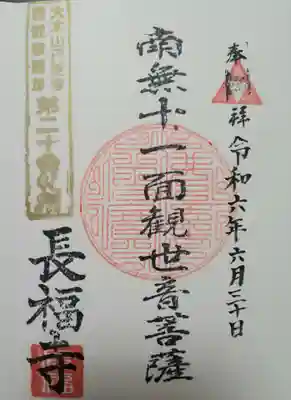 奉拝
令和六年六月二十日
南無十一面観世音菩薩
第二十番札所
長福寺